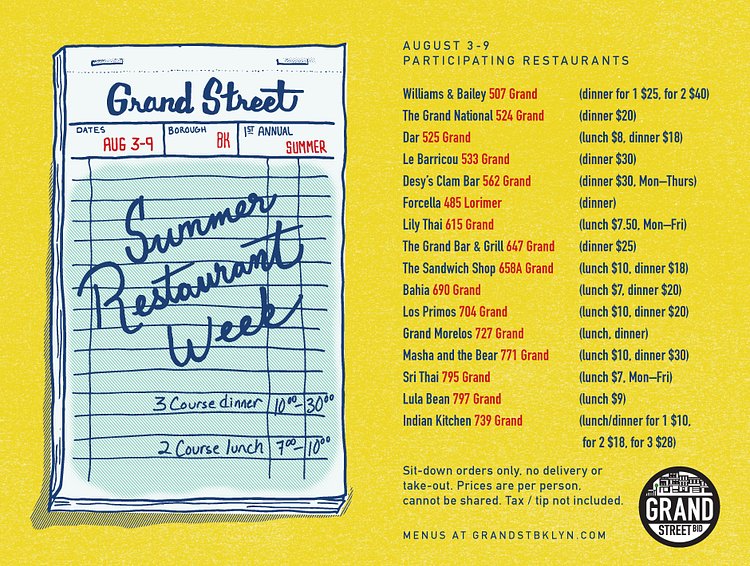 Grand Street
DATES
AUG 3-9
BOROUGH
BK
1ST ANNUAL
SUMMER
Summer
Restaurant
Week
3 Course dinner 10⁰⁰-30⁰⁰
2 Course lunch 7⁰⁰-10⁰⁰
AUGUST 3-9
PARTICIPATING RESTAURANTS
Williams & Bailey 507 Grand (dinner for 1 $25, for 2 $40)
The Grand National 524 Grand (dinner $20)
Dar 525 Grand (lunch $8, dinner $18)
Le Barricou 533 Grand (dinner $30)
Desy's Clam Bar 562 Grand (dinner $30, Mon—Thurs)
Forcella 485 Lorimer (dinner)
Lily Thai 615 Grand (lunch $7.50, Mon—Fri)
The Grand Bar & Grill 647 Grand (dinner $25)
The Sandwich Shop 658A Grand (lunch $10, dinner $18)
Bahia 690 Grand (lunch $7, dinner $20)
Los Primos 704 Grand (lunch $10, dinner $20)
Grand Morelos 727 Grand (lunch, dinner)
Masha and the Bear 771 Grand (lunch $10, dinner $30)
Sri Thai 795 Grand (lunch $7, Mon—Fri)
Lula Bean 797 Grand (lunch $9)
Indian Kitchen 739 Grand (lunch/dinner for 1 $10,
for 2 $18, for 3 $28)
Sit-down orders only, no delivery or
take-out. Prices are per person,
cannot be shared. Tax / tip not included.
MENUS AT GRANDSTBKLYN.COM
GRAND
STREET BID